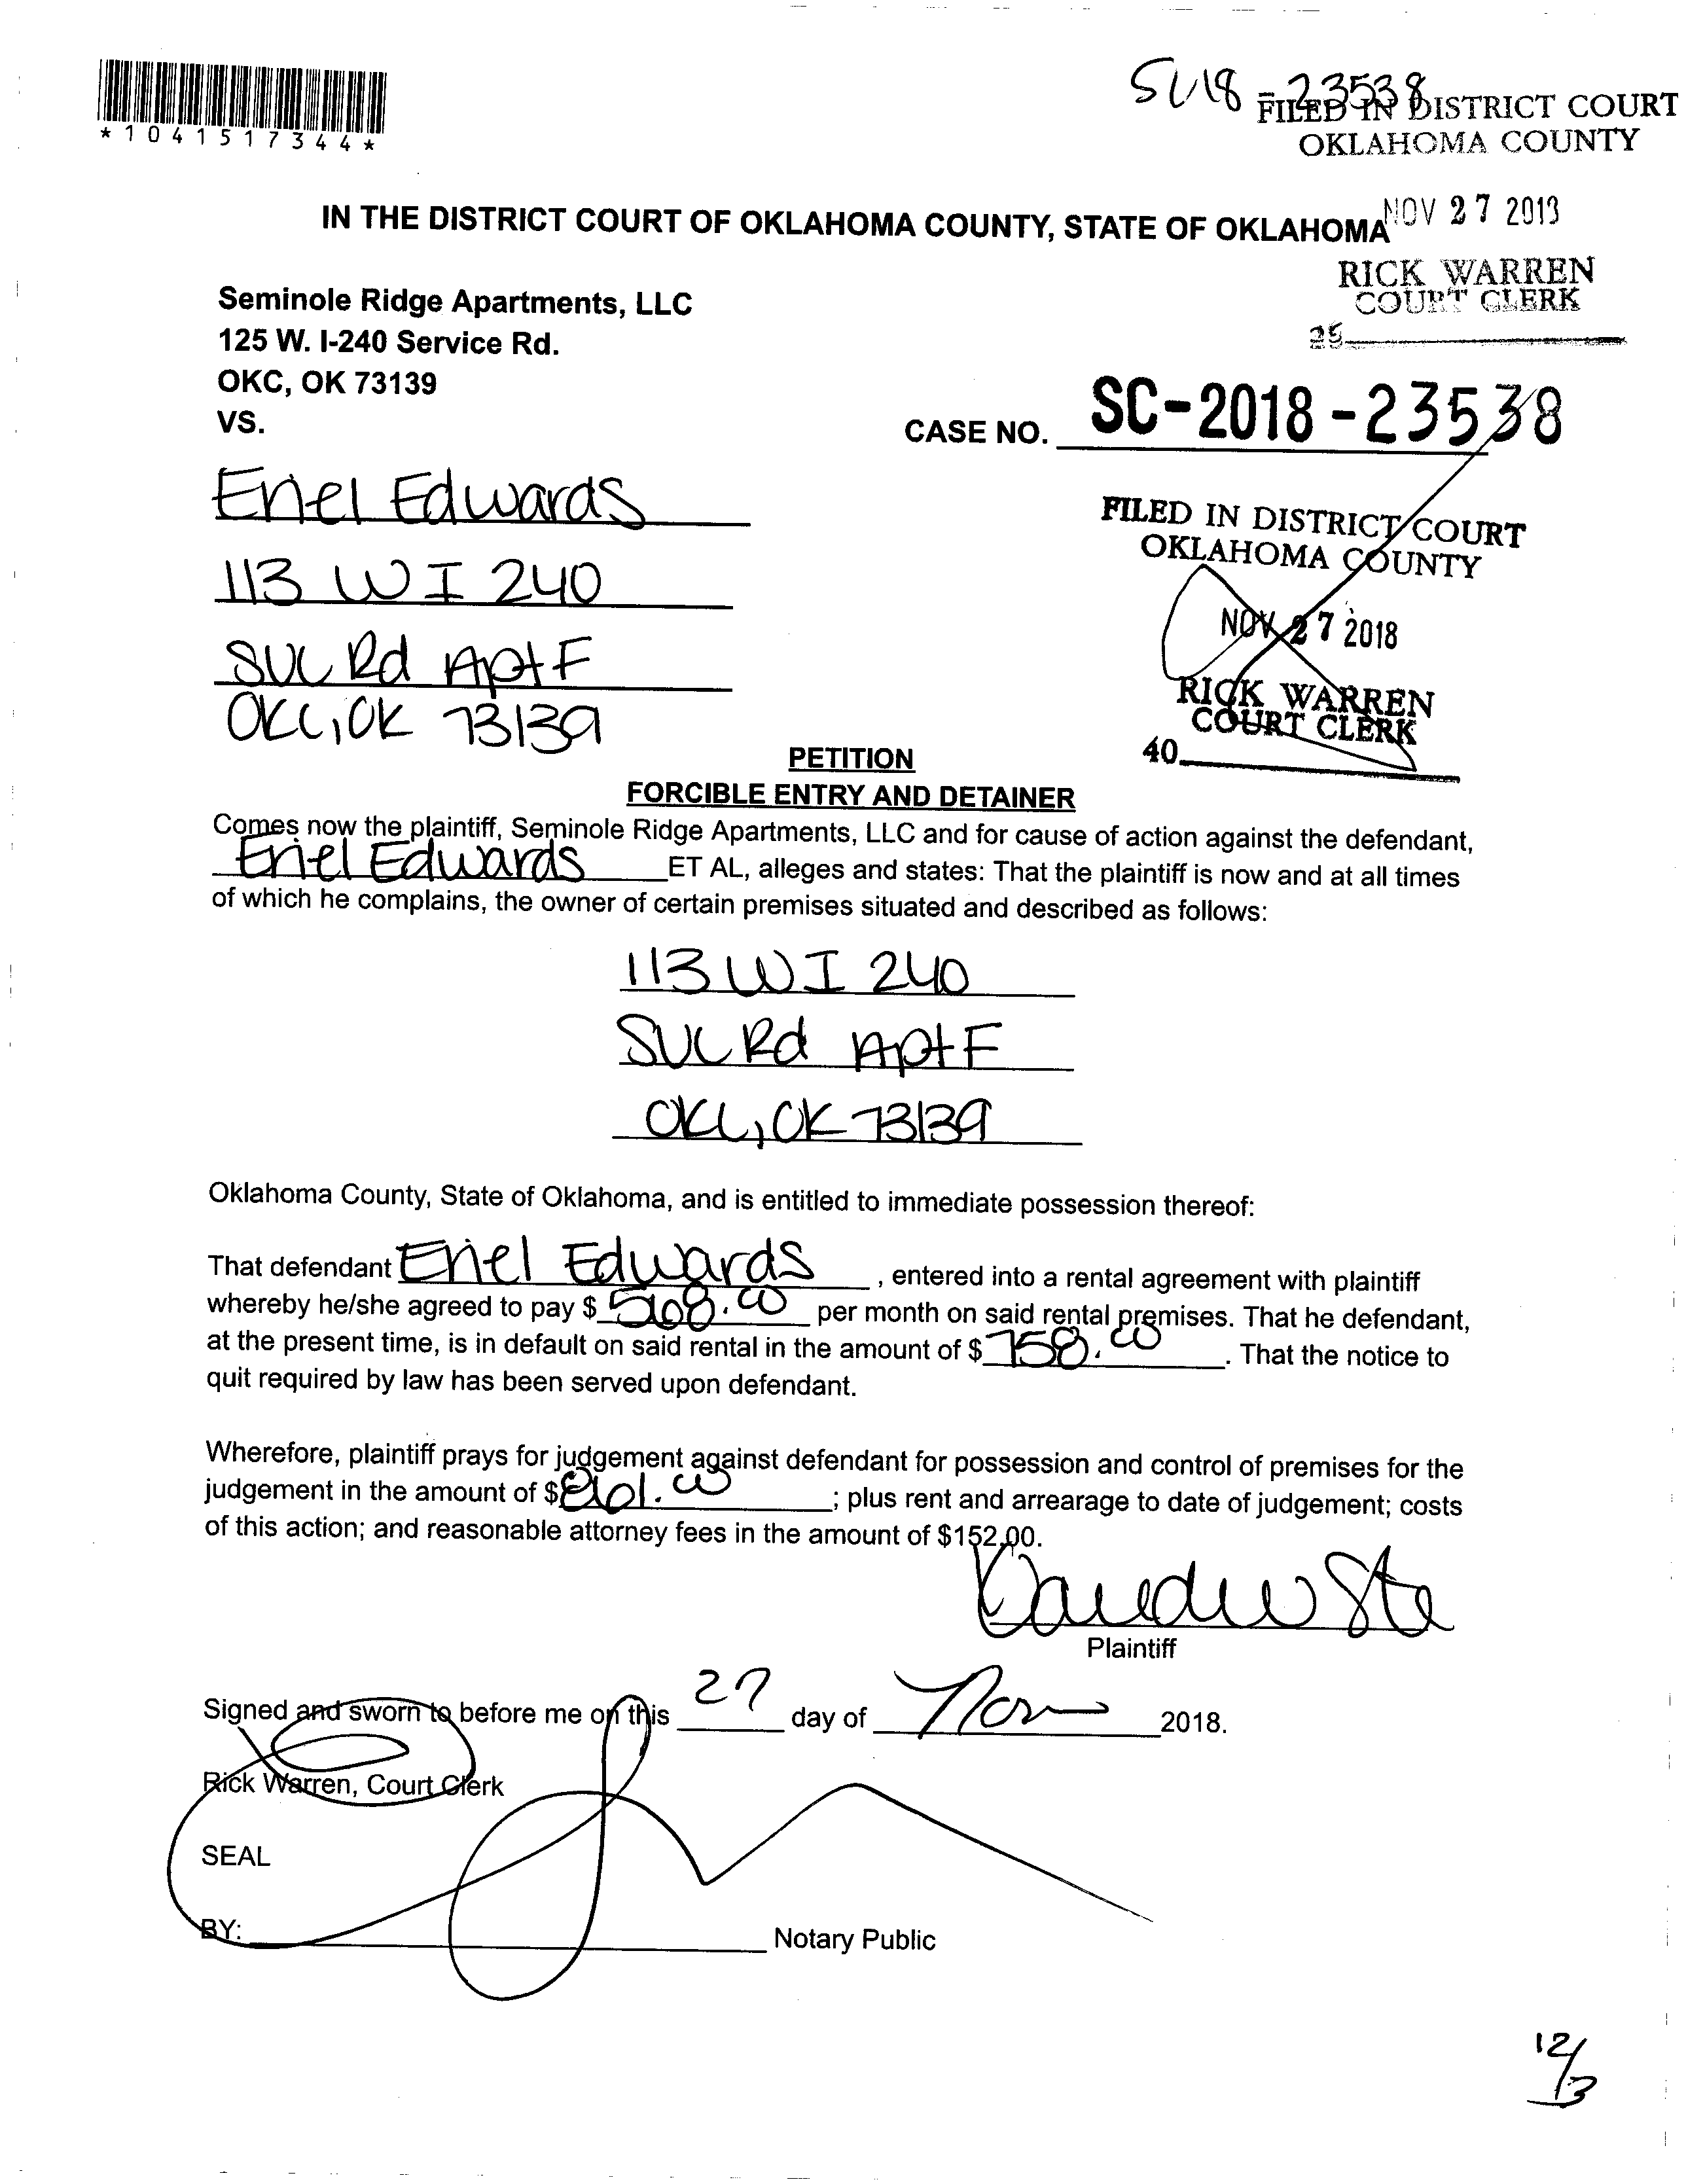 SC18-23538
FILED IN DISTRICT COURT
OKLAHOMA COUNTY
*1041517344*
NOV 27 2018
IN THE DISTRICT COURT OF OKLAHOMA COUNTY, STATE OF OKLAHOMA
RICK WARREN
COURT CLERK
Seminole Ridge Apartments, LLC
125 W. I-240 Service Rd.
OKC, OK 73139
VS.
CASE NO. SC-2018-23538
Eriel Edwards
113 W I 240
SVC Rd Apt F
OKC, OK 73139
FILED IN DISTRICT COURT
OKLAHOMA COUNTY
NOV 27 2018
RICK WARREN
COURT CLERK
40
PETITION
FORCIBLE ENTRY AND DETAINER
Comes now the plaintiff, Seminole Ridge Apartments, LLC and for cause of action against the defendant,
Eriel Edwards ET AL, alleges and states: That the plaintiff is now and at all times
of which he complains, the owner of certain premises situated and described as follows:
113 W I 240
SVC Rd Apt F
OKC, OK 73139
Oklahoma County, State of Oklahoma, and is entitled to immediate possession thereof:
That defendant Eriel Edwards, entered into a rental agreement with plaintiff
whereby he/she agreed to pay $ 568.00 per month on said rental premises. That he defendant,
at the present time, is in default on said rental in the amount of $ 758.00. That the notice to
quit required by law has been served upon defendant.
Wherefore, plaintiff prays for judgement against defendant for possession and control of premises for the
judgement in the amount of $ 861.00; plus rent and arrearage to date of judgement; costs
of this action; and reasonable attorney fees in the amount of $152.00.
Plaintiff
Signed and sworn to before me on this 27 day of Nov 2018.
Rick Warren, Court Clerk
SEAL
BY: Notary Public
12/3